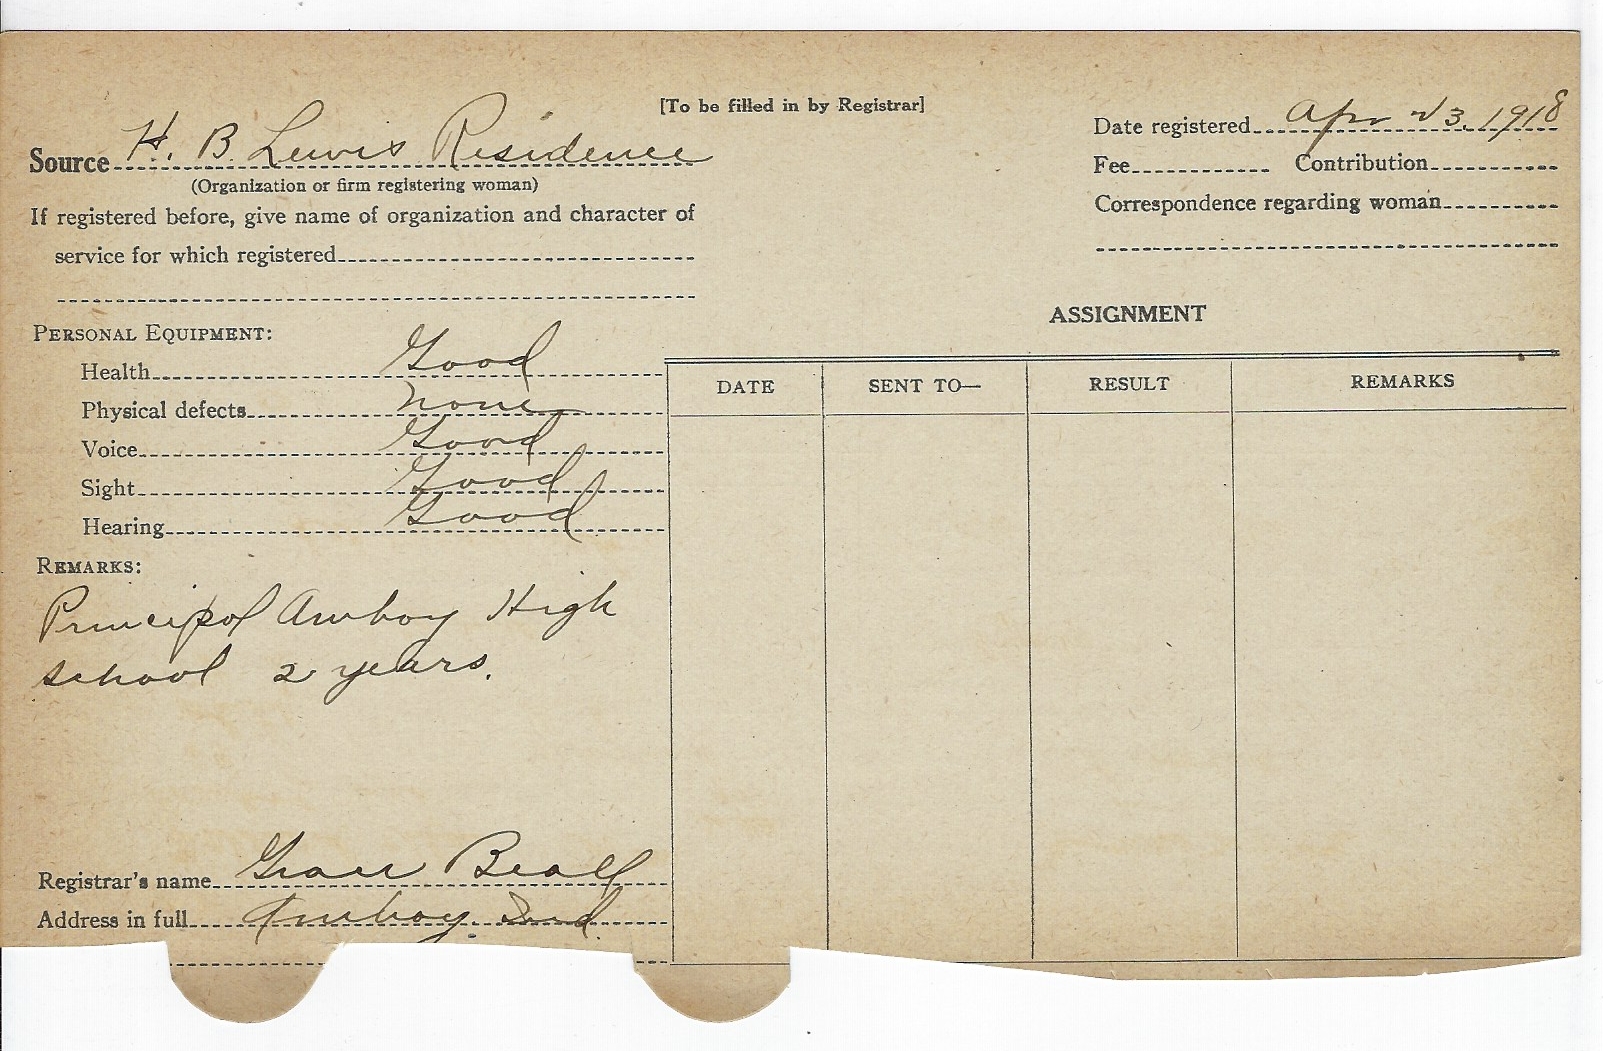 [To be filled in by Registrar]
Source H. B. Lewis Residence
(Organization or firm registering woman)
If registered before, give name of organization and character of
service for which registered
Date registered Apr 23, 1918
Fee Contribution
Correspondence regarding woman
PERSONAL EQUIPMENT:
Health Good
Physical defects none
Voice Good
Sight Good
Hearing Good
REMARKS:
Principal Amboy High
school 2 years.
Registrar's name Grace Beall
Address in full Amboy. Ind.
ASSIGNMENT
DATE SENT TO— RESULT REMARKS